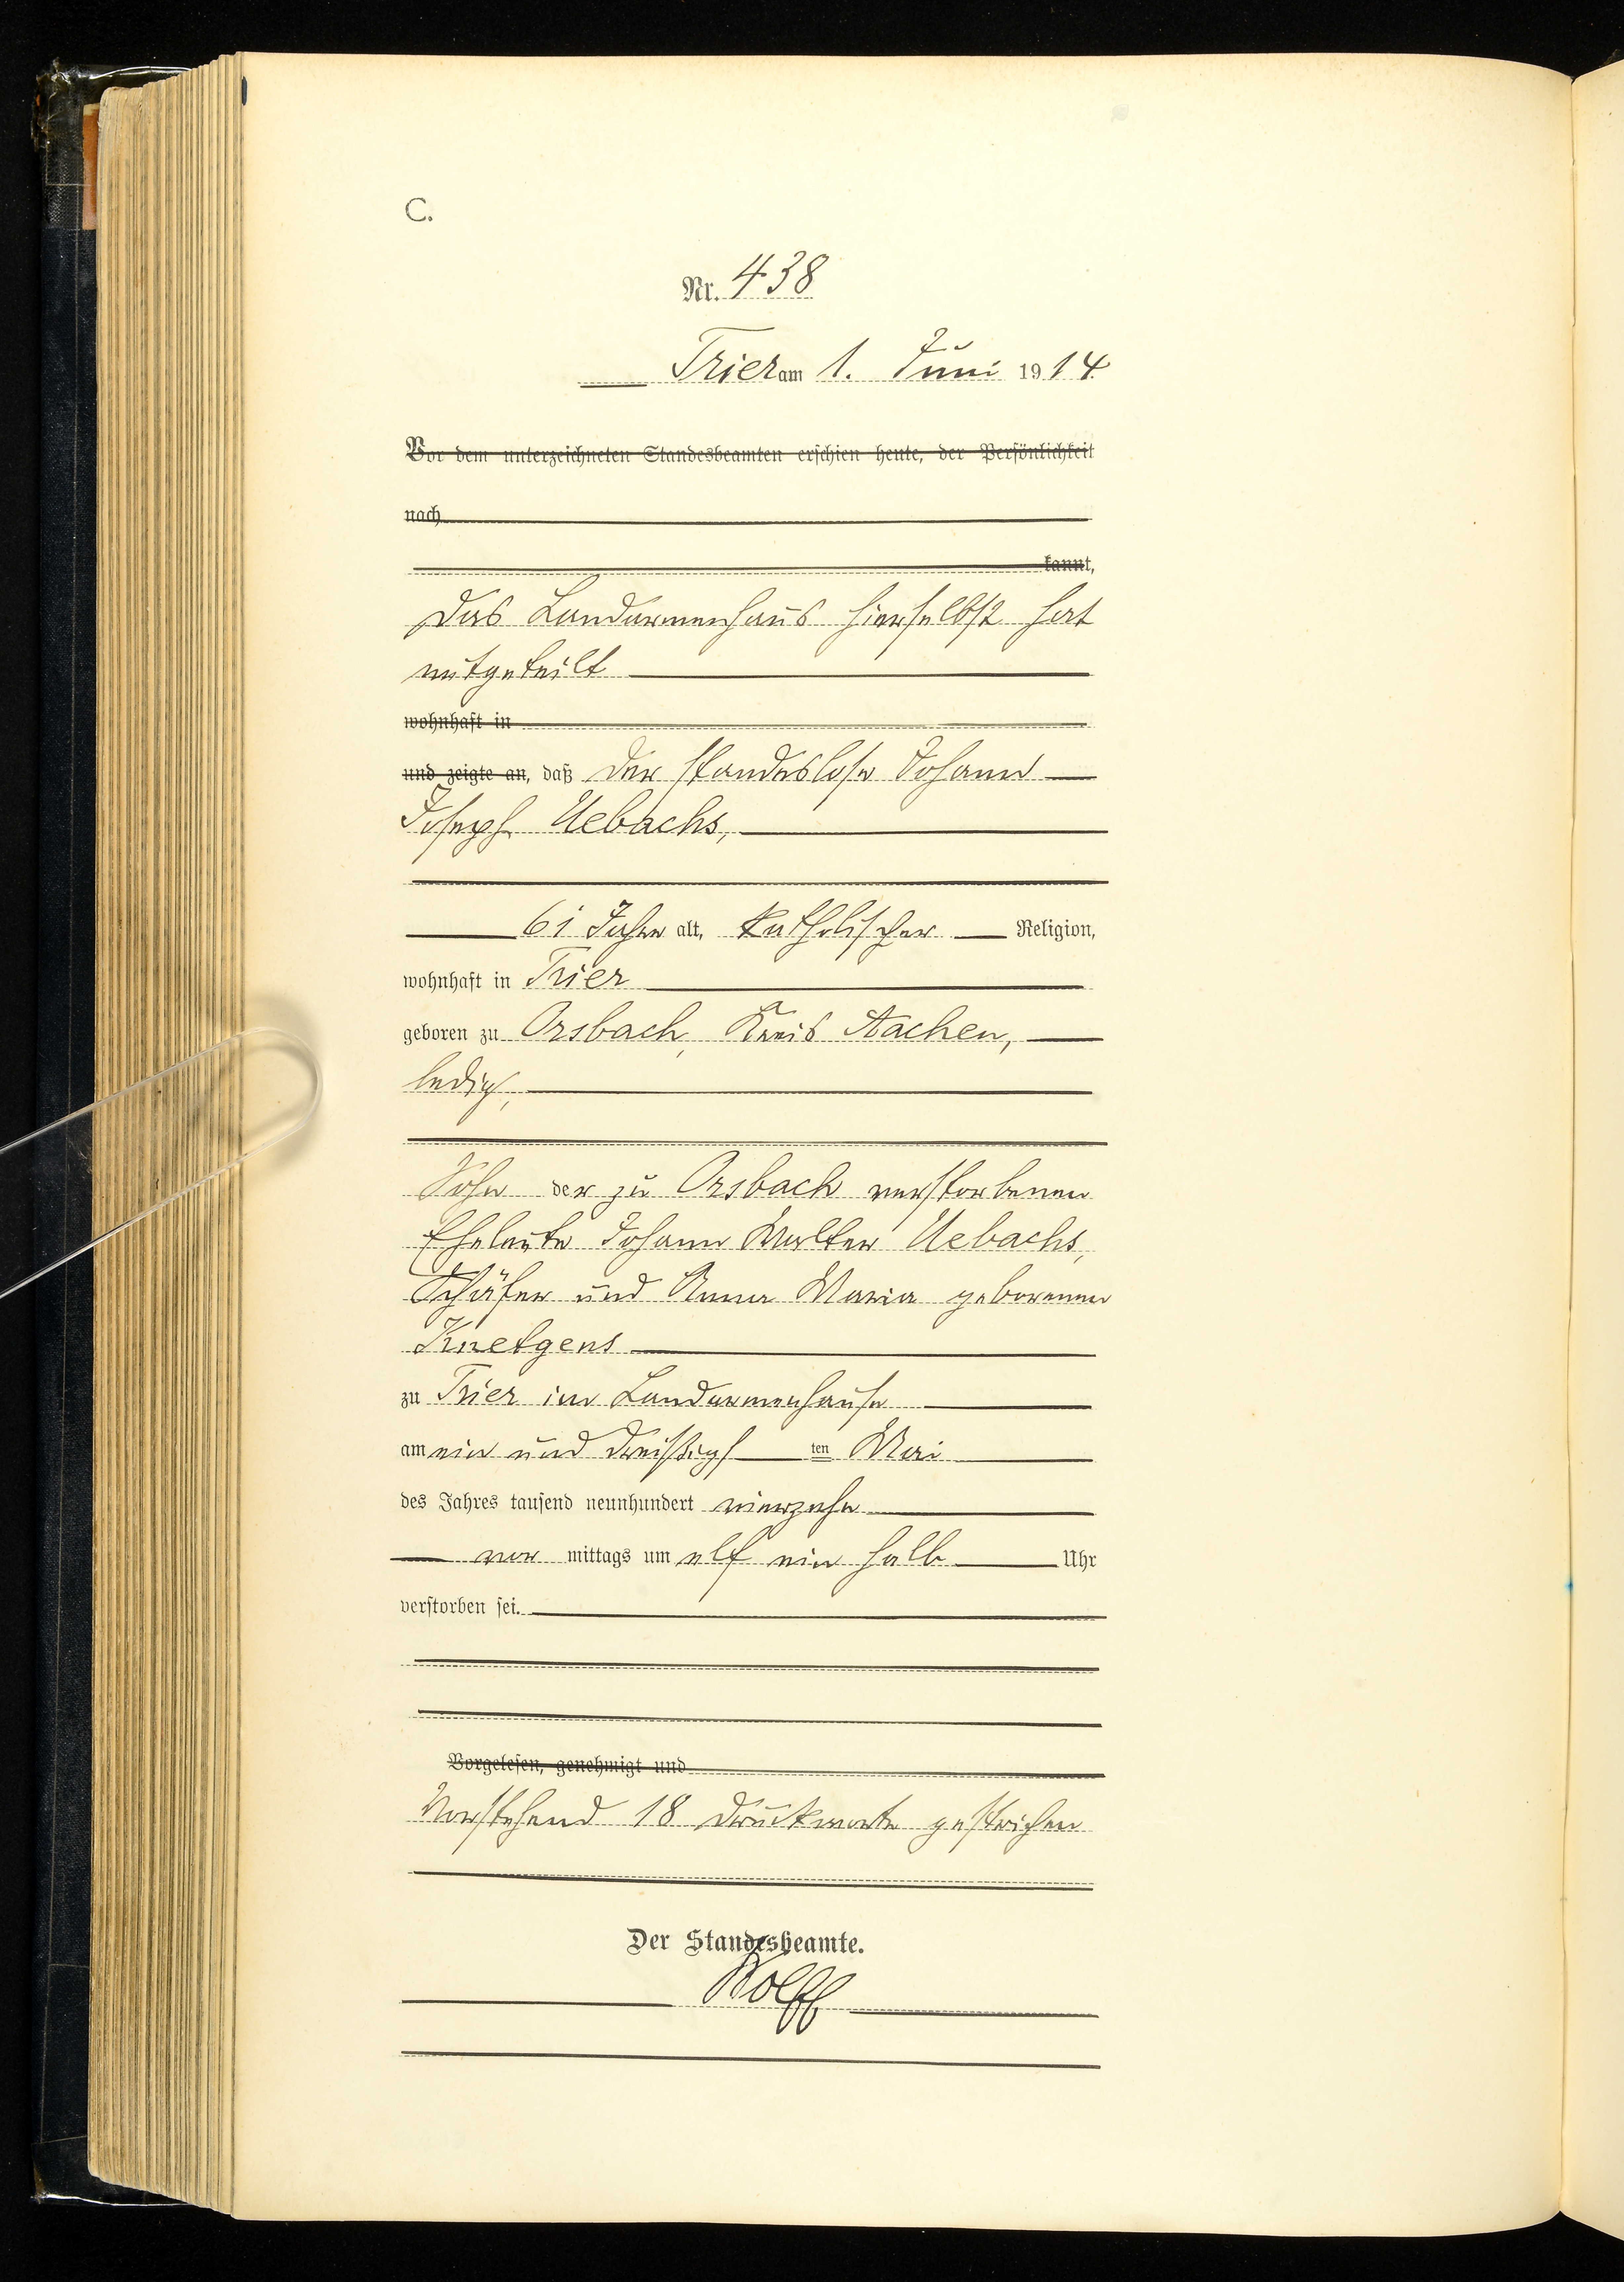 C.
Nr. 438
Trier am 1. Juni 1914.
Vor dem unterzeichneten Standesbeamten erschien heute, der Persönlichkeit
nach
kannt,
Das Landarmenhaus hierselbst hat
mitgeteilt
wohnhaft in
und zeigte an, daß der standeslose Johann
Joseph Uebachs,
61 Jahre alt, katholischer Religion,
wohnhaft in Trier
geboren zu Orsbach, Kreis Aachen,
ledig,
Sohn der zu Orsbach verstorbenen
Eheleute Johann Walter Uebachs,
Schäfer und Anna Maria geborenen
Knetgens
zu Trier im Landarmenhause
am ein und dreißigs ten Mai
des Jahres tausend neunhundert vierzehn
vor mittags um elf ein halb Uhr
verstorben sei.
Vorgelesen, genehmigt und
Vorstehend 18 Druckworte gestrichen
Der Standesbeamte.
Wolff